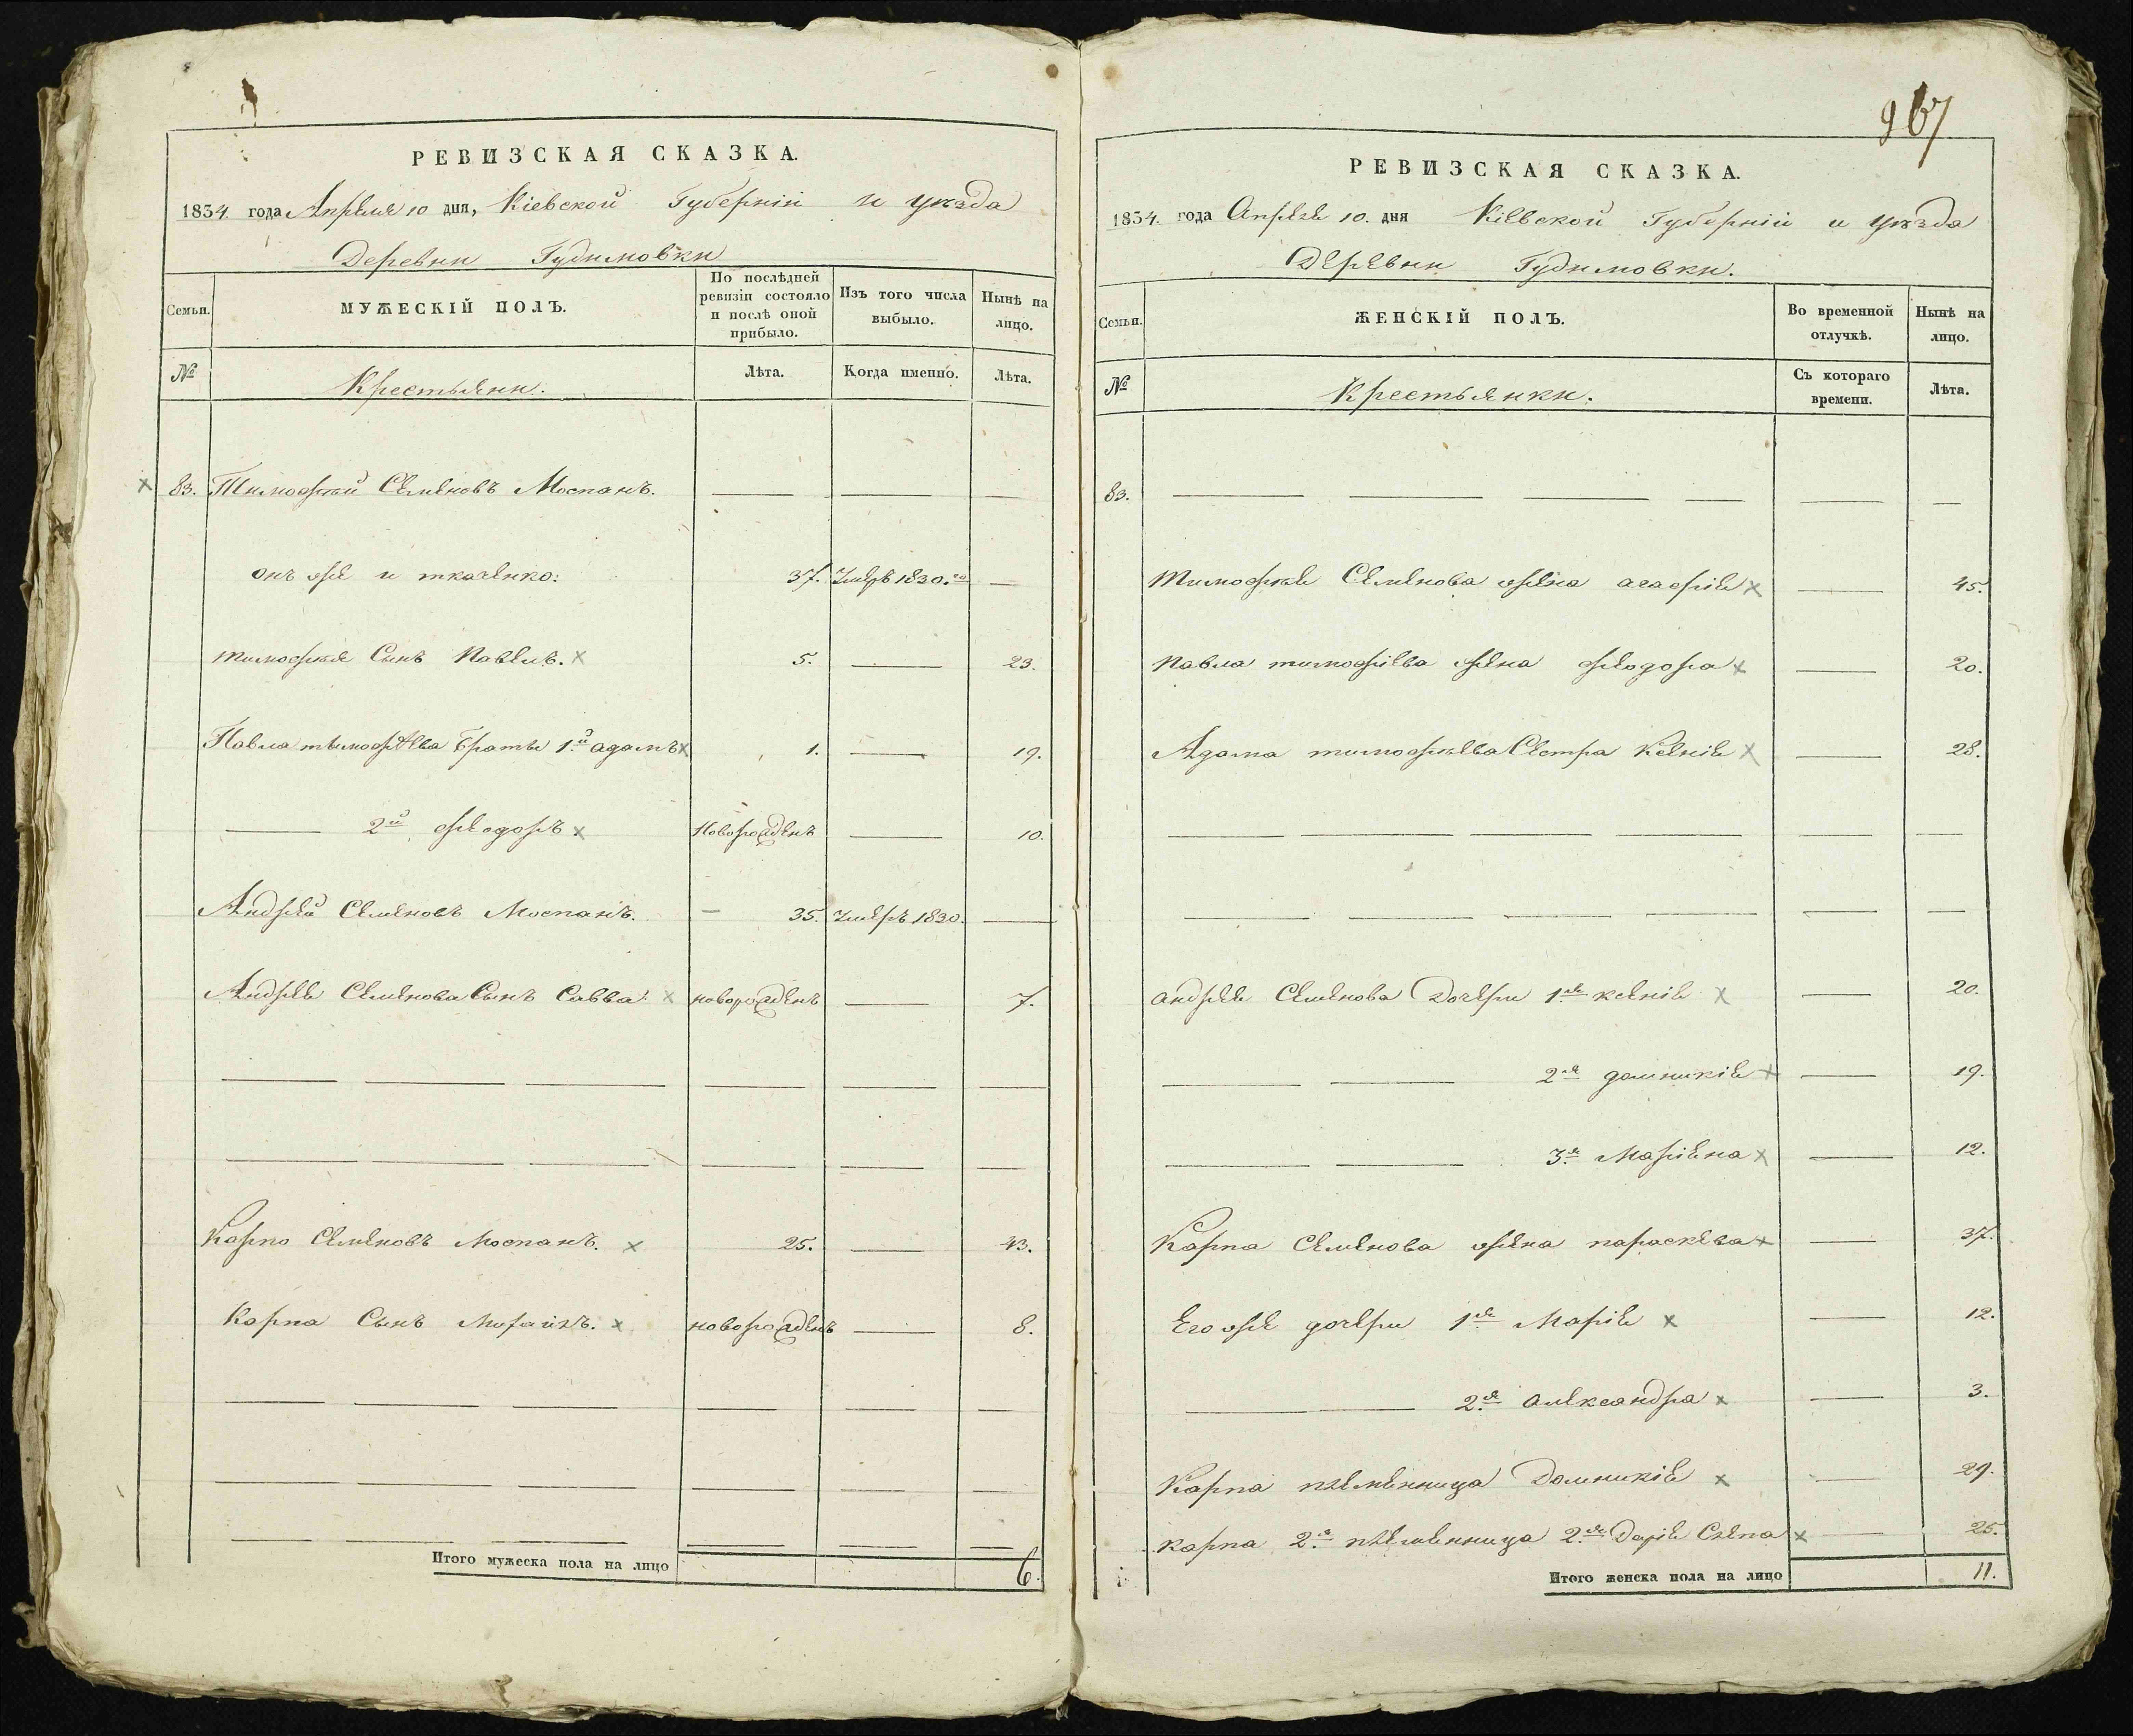 967
РЕВИЗСКАЯ СКАЗКА.
1834. года Апреля 10 дня, Кіевской Губерніи и уезда
Деревни Гудимовки
Семьи.
МУЖЕСКІЙ ПОЛЪ.
По послѣдней ревизіи состояло и послѣ оной прибыло.
Изъ того числа выбыло.
Нынѣ на лицо.
№
Крестьяни.
Лѣта.
Когда именно.
Лѣта.
83. Тимофей Семеновъ Моспанъ.
онъ же и ткаченко: 37. Умеръ 1830.го
тимофея Сынъ Павелъ. 5. 23.
Павла тимофеева Братья 1.й адамъ 1. 19.
2й феодоръ Новорожденъ 10.
Андрей Семеновъ Моспанъ. 35. Умеръ 1830.
Андрея Семенова Сынъ Савва: новорожденъ 7.
Карпо Семеновъ Моспанъ. 25. 43.
Карпа Сынъ новорожденъ 8.
Итого мужеска пола на лицо 6.
РЕВИЗСКАЯ СКАЗКА.
1834. года Апреля 10. дня Кіевской Губерніи и уезда
Деревни Гудимовки.
Семьи.
ЖЕНСКІЙ ПОЛЪ.
Во временной отлучкѣ.
Нынѣ на лицо.
№
Крестьянки.
Съ котораго времени.
Лѣта.
83.
Тимофея Семенова жена агафія 45.
Павла тимофіева жена феодора 20.
Адама тимофеева Сестра Ксенія 28.
андрея Семенова Дочери 1.я ксенія 20.
2я домникія 19.
3.я Маріена 12.
Карпа Семенова жена параскева 37.
Его же дочери 1я Марія 12.
2.я александра 3.
Карпа племенница Домникія 29.
карпа 2.я племенница 2.я Дарія Слепа 25.
Итого женска пола на лицо 11.